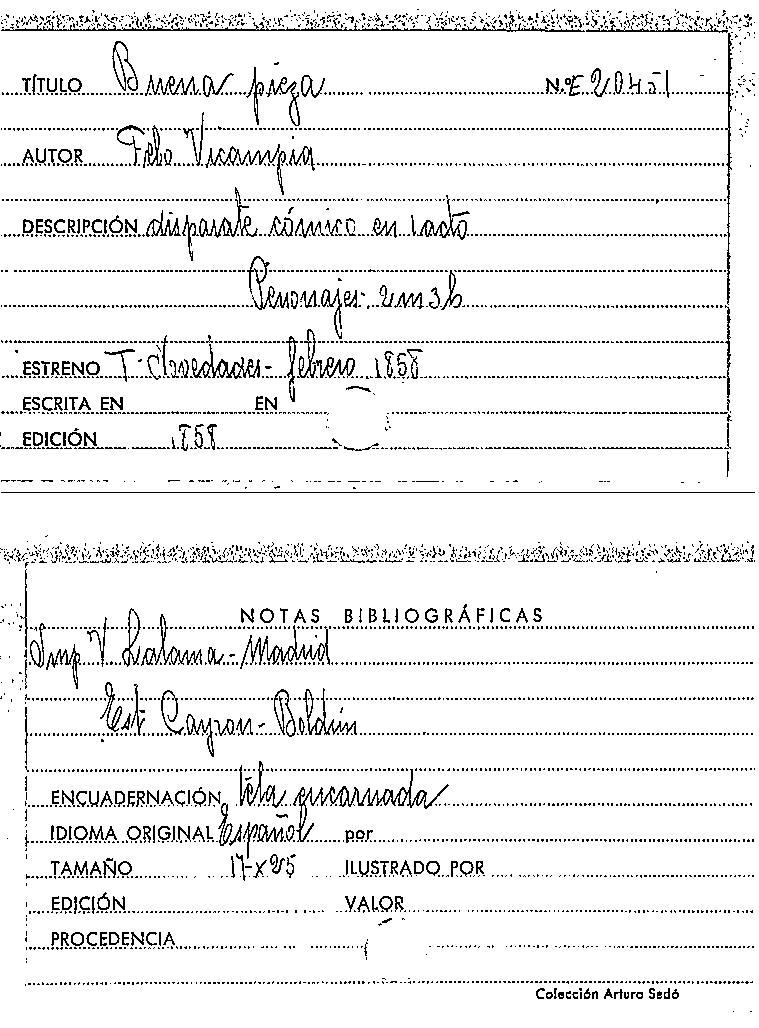 TÍTULO Buena pieza N.ºE 20451
AUTOR Febo Vicampia
DESCRIPCIÓN disparate cómico en 1 acto
Personajes. 2 m 3 h
ESTRENO T. Novedades - febrero 1858
ESCRITA EN EN
EDICIÓN 1858
NOTAS BIBLIOGRÁFICAS
Imp V. Lalama - Madrid
Est Cayron - Boldún
ENCUADERNACIÓN tela encarnada
IDIOMA ORIGINAL Español por
TAMAÑO 17 x 25 ILUSTRADO POR
EDICIÓN VALOR
PROCEDENCIA
Colección Arturo Sedó